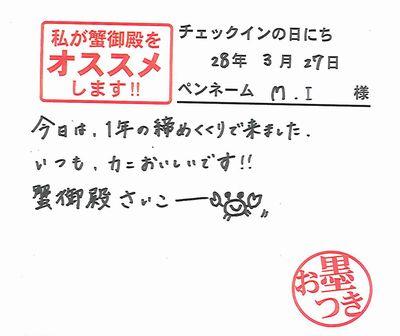 私が蟹御殿を
オススメ
します!!
チェックインの日にち
28年 3月 27日
ペンネーム M.I 様
今日は、1年の締めくくりで来ました.
いつも、カニおいしいです!!
蟹御殿さいこー
お墨つき